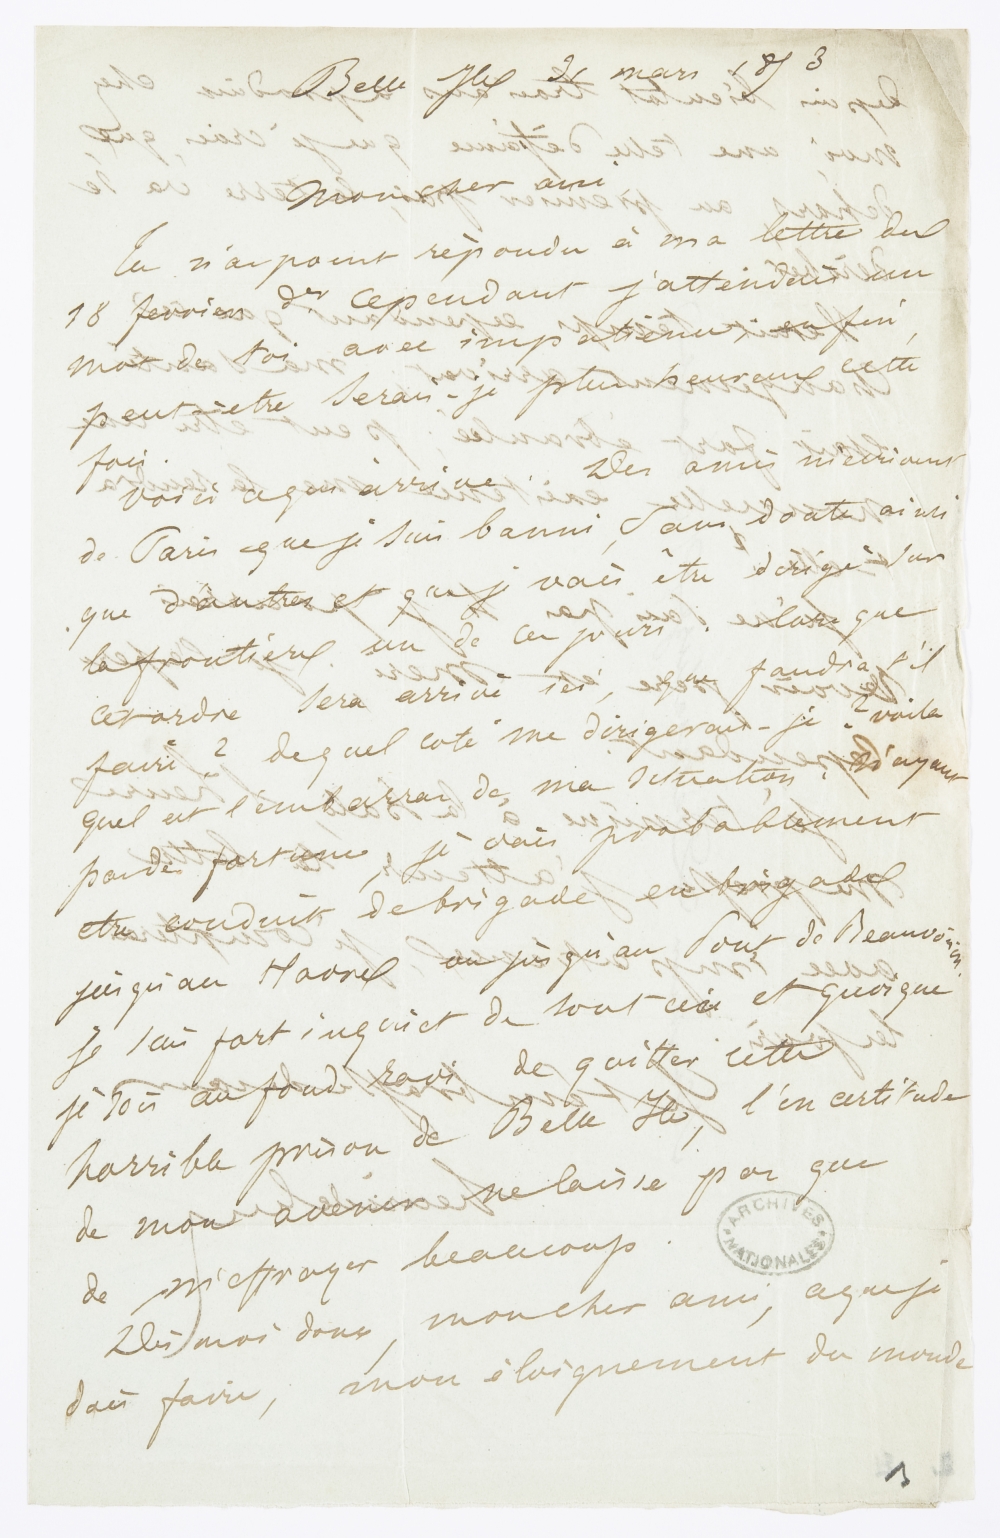 Belle Ile 31 mars 1853
Mon cher ami
Tu n'as point répondu à ma lettre du
18 fevrier der cependant j'attendais un
mot de toi avec impatience, enfin,
peut-etre serai-je plus heureux cette
fois.
Voici ce qui arrive. Des amis m'ecrivent
de Paris que je suis banni, sans doute ainsi
que d'autres et que je vais être dirigé sur
la frontière un de ces jours. Lorsque
cet ordre sera arrivé ici, que faudra-t'il
faire ? de quel coté me dirigerai-je ? voila
quel est l'embarras de ma situation. N'ayant
pas de fortune, je vais probablement
etre conduit de brigade en brigade
jusqu'au Havre ou jusqu'au Pont de Beauvoisin.
je suis fort inquiet de tout ceci et quoique
je sois au fond ravi de quitter cette
horrible prison de Belle Ile, l'incertitude
de mon avenir ne laisse pas que
de m'effrayer beaucoup.
Dis moi donc, mon cher ami, ce que je
dois faire, mon éloignement du monde
ARCHIVES
NATIONALES